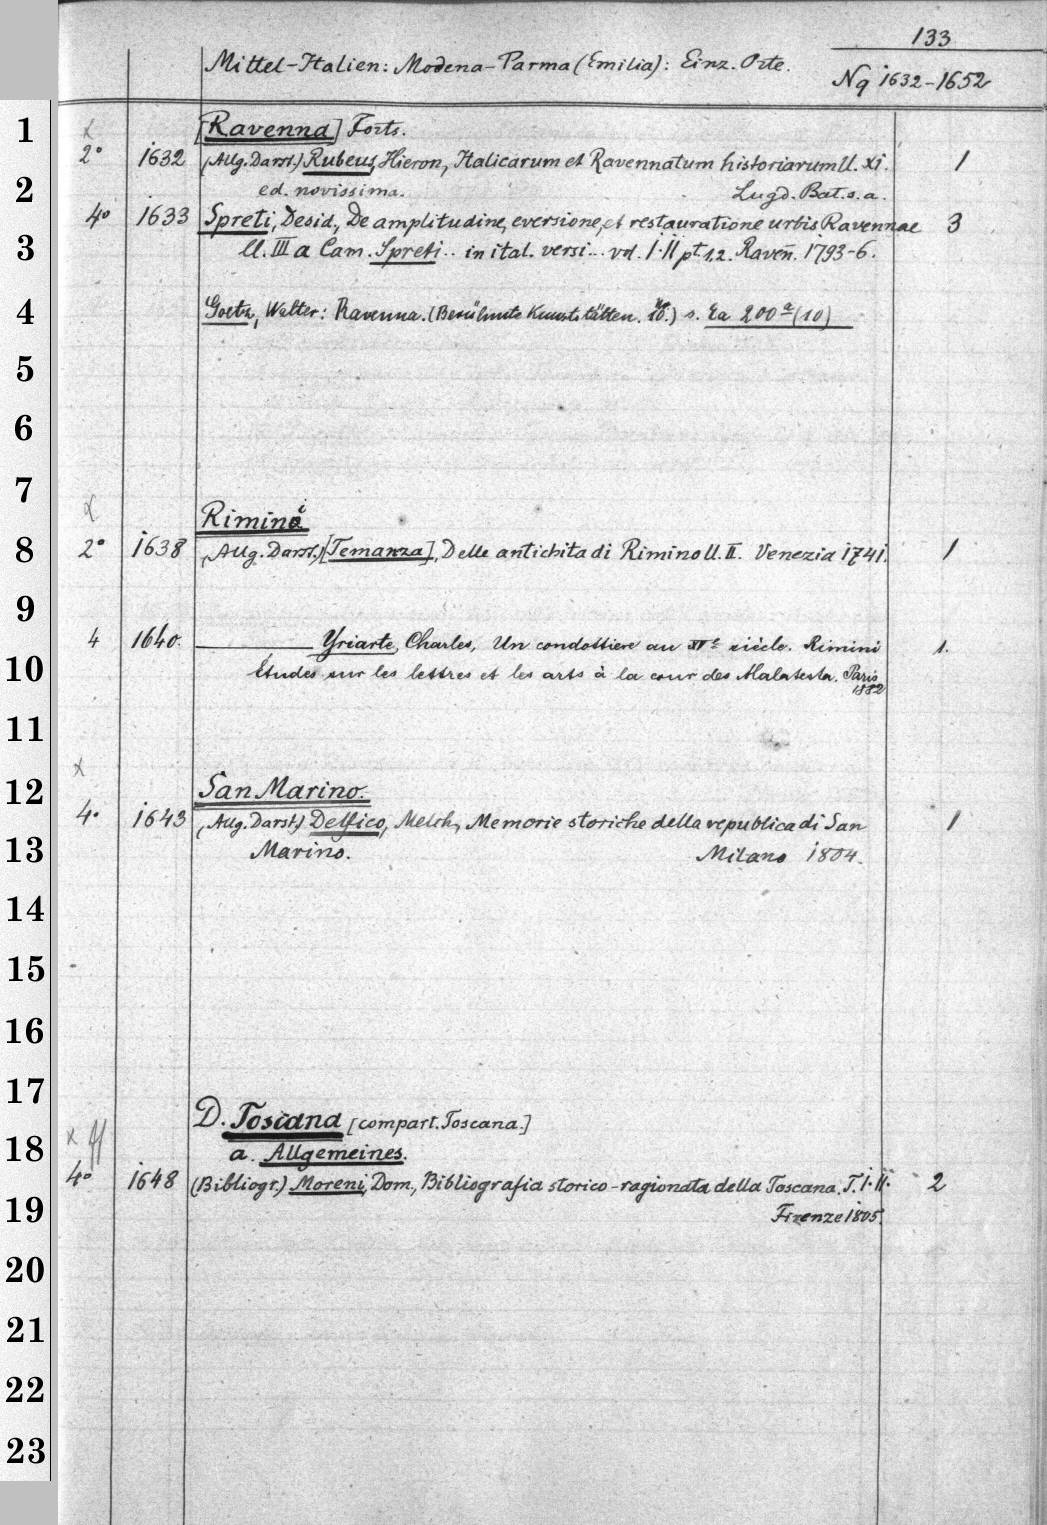 133
Mittel-Italien: Modena-Parma (Emilia): Einz. Orte.
Nq 1632-1652
1
[Ravenna] Forts.
2° 1632 (Allg. Darst.) Rubeus, Hieron, Italicarum et Ravennatum historiarum ll. XI. 1
2
ed. novissima. Lugd. Bat. s. a.
4° 1633 Spreti, Desid., De amplitudine, eversione, et restauratione urbis Ravennae 3
3
ll. III a Cam. Spreti .. in ital. versi... vol. I. II pt 1.2. Raven. 1793-6.
4
Goetz, Walter: Ravenna. (Berühmte Kunststätten. 10.) s. Ea 200 a (10)
5
6
7
Rimini
8
2° 1638 (Allg. Darst.) [Temanza], Delle antichita di Rimino ll. II. Venezia 1741. 1
9
4 1640. Yriarte, Charles, Un condottiere au XVe siècle. Rimini 1.
10
Études sur les lettres et les arts à la cour des Malatesta. Paris
1882
11
12
San Marino.
4° 1643 (Allg. Darst.) Delfico, Melch., Memorie storiche della republica di San 1
13
Marino. Milano 1804.
14
15
16
17
D. Toscana [compart. Toscana.]
18
a. Allgemeines.
4° 1648 (Bibliogr.) Moreni, Dom., Bibliografia storico-ragionata della Toscana. T. I. II. 2
19
Firenze 1805.
20
21
22
23